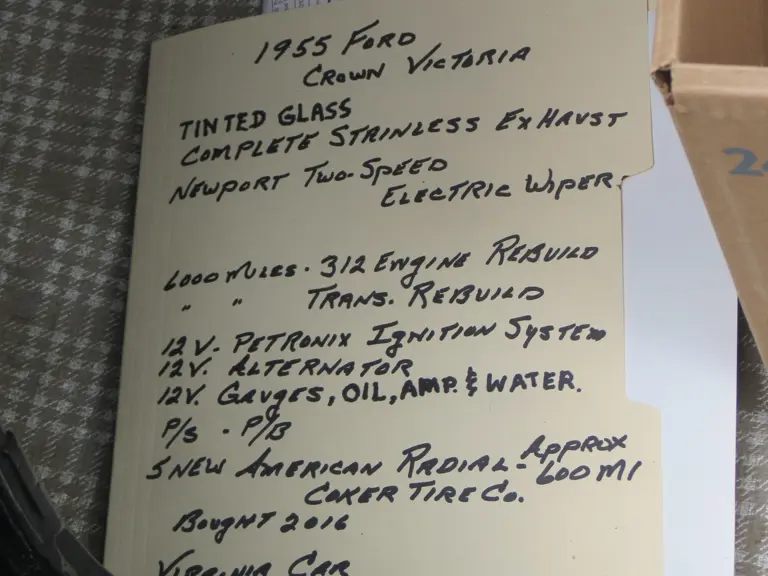 1955 FORD
CROWN VICTORIA
TINTED GLASS
COMPLETE STAINLESS EXHAUST
NEWPORT TWO-SPEED
ELECTRIC WIPER.
6000 MILES. 312 ENGINE REBUILD
" " TRANS. REBUILD
12 V. PETRONIX IGNITION SYSTEM
12V. ALTERNATOR
12V. GAUGES, OIL, AMP. & WATER.
P/S - P/B
5 NEW AMERICAN RADIAL - APPROX
600 MI
COKER TIRE CO.
BOUGHT 2016
VIRGINIA CAR
2